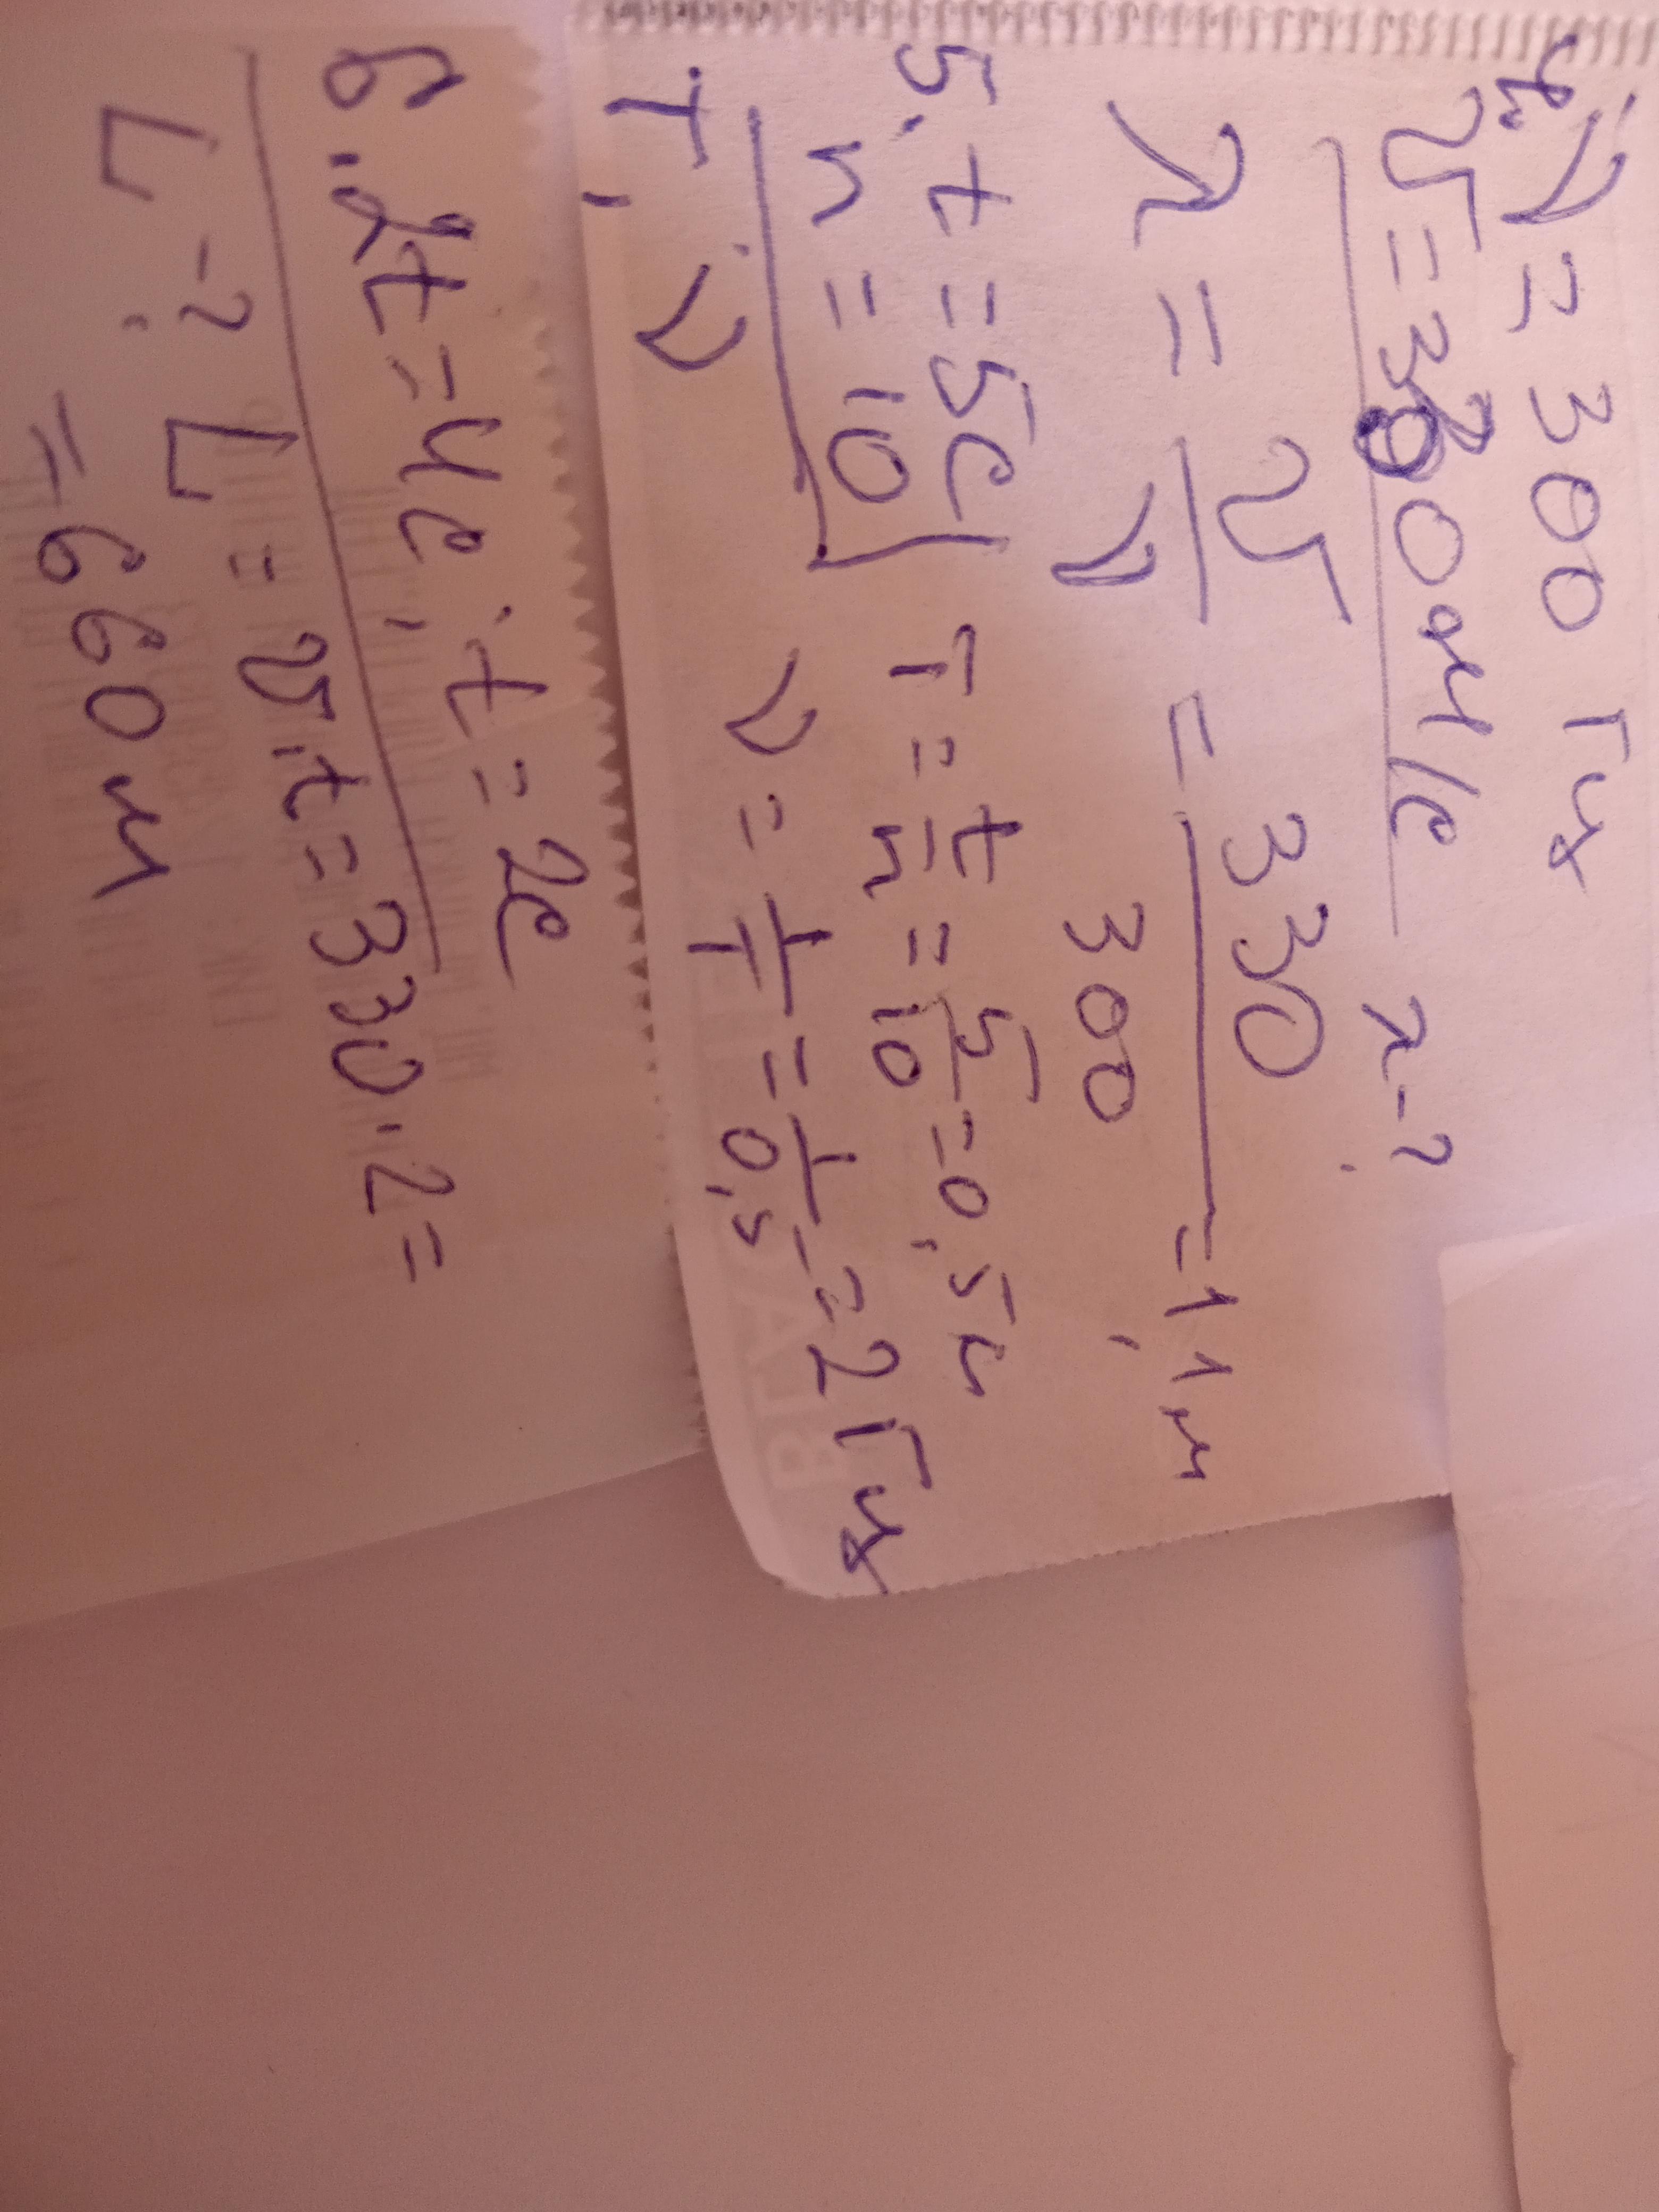 4. ν = 300 Гц
v = 330 м/с λ - ?
λ = v/ν = 330/300 = 1,1 м
5. t = 5с
n = 10
T, ν
T = t/n = 5/10 = 0,5 м
ν = 1/T = 1/0,5 = 2 Гц
6. 2t = 4с, t = 2с
L - ? L = v·t = 330·2 =
= 660 м